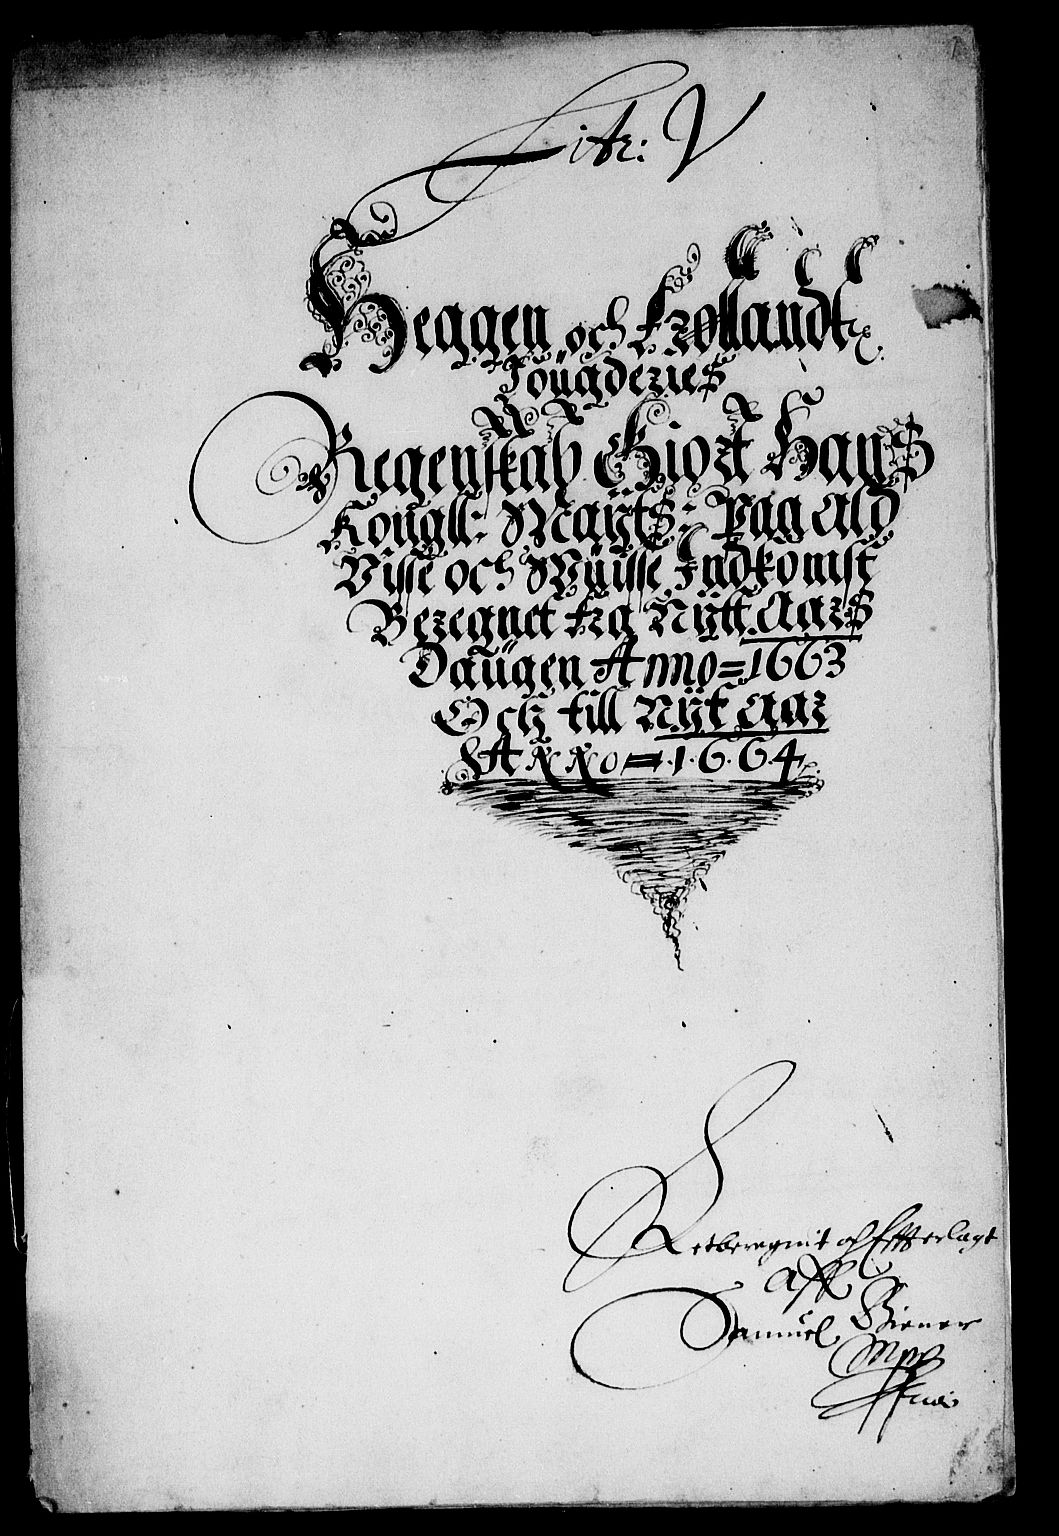 Litr: V
Heggen och Frollandtz
Fougderies
Regenskab Giort Hans
Kongll: Maÿts: Paa ald
Visse och Wuisse Indkomst
Beregnet fra Nÿtt Aars
Daugen Anno = 1663
Och till Nÿt Aar
Anno = 1.6.6.4.
Retberegnit och Effterlagt
aff
Samuel
Mpp